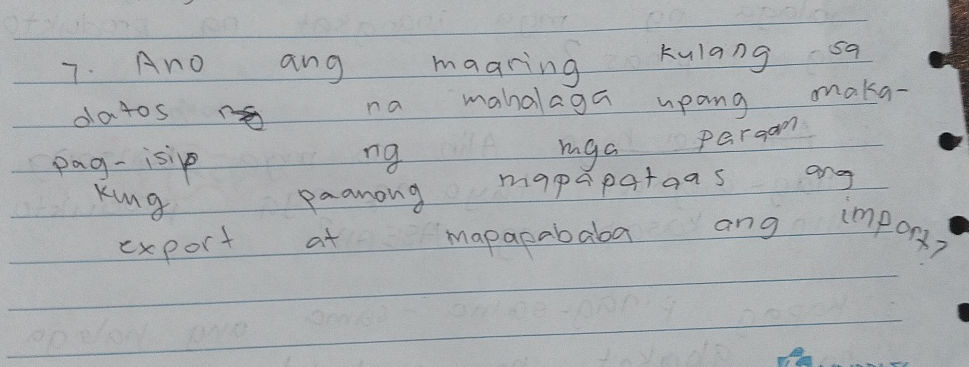 7. Ano ang maaring kulang sa
datos na mahalaga upang maka-
pag-isip ng mga paraan
kung paanong mapapataas ang
export at mapapababa ang import?